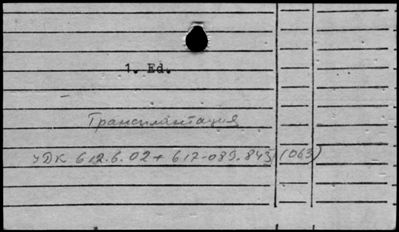 1. Ed.
Трансплантация
УДК 612.6.02+617-089.843 (063)